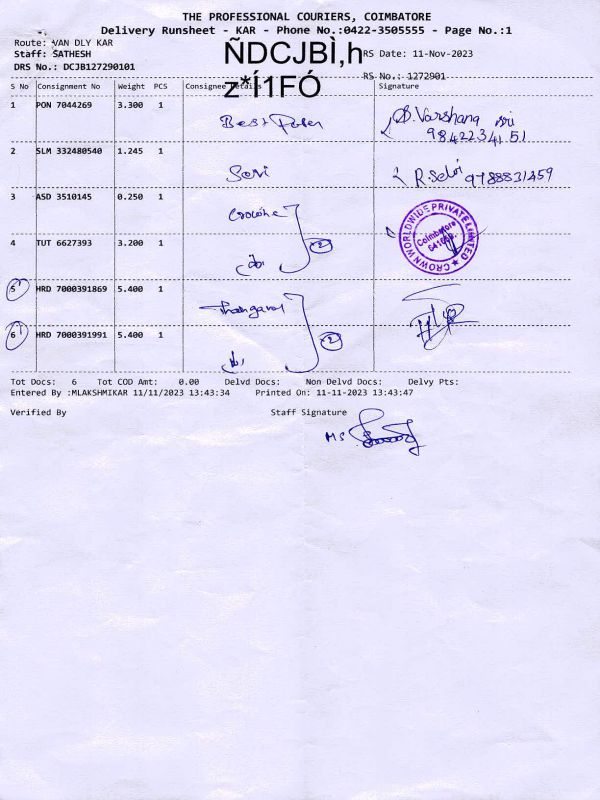 THE PROFESSIONAL COURIERS, COIMBATORE
Delivery Runsheet - KAR - Phone No.:0422-3505555 - Page No.:1
Route: VAN DLY KAR
Staff: SATHESH
DRS No.: DCJB127290101
ÑDCJBÌ,h
z*Í1FÓ
RS Date: 11-Nov-2023
RS No.: 1272901
S No Consignment No Weight PCS Consignee Details Signature
1 PON 7044269 3.300 1
Best
9842234151
2 SLM 332480540 1.245 1
Sori R.Selvi 9788831459
3 ASD 3510145 0.250 1
CROWN WORLDWIDE PRIVATE LIMITED
Coimbatore
4 TUT 6627393 3.200 1
2
5 HRD 7000391869 5.400 1
6 HRD 7000391991 5.400 1
2
Tot Docs: 6 Tot COD Amt: 0.00 Delvd Docs: Non Delvd Docs: Delvy Pts:
Entered By :MLAKSHMIKAR 11/11/2023 13:43:34 Printed On: 11-11-2023 13:43:47
Verified By Staff Signature